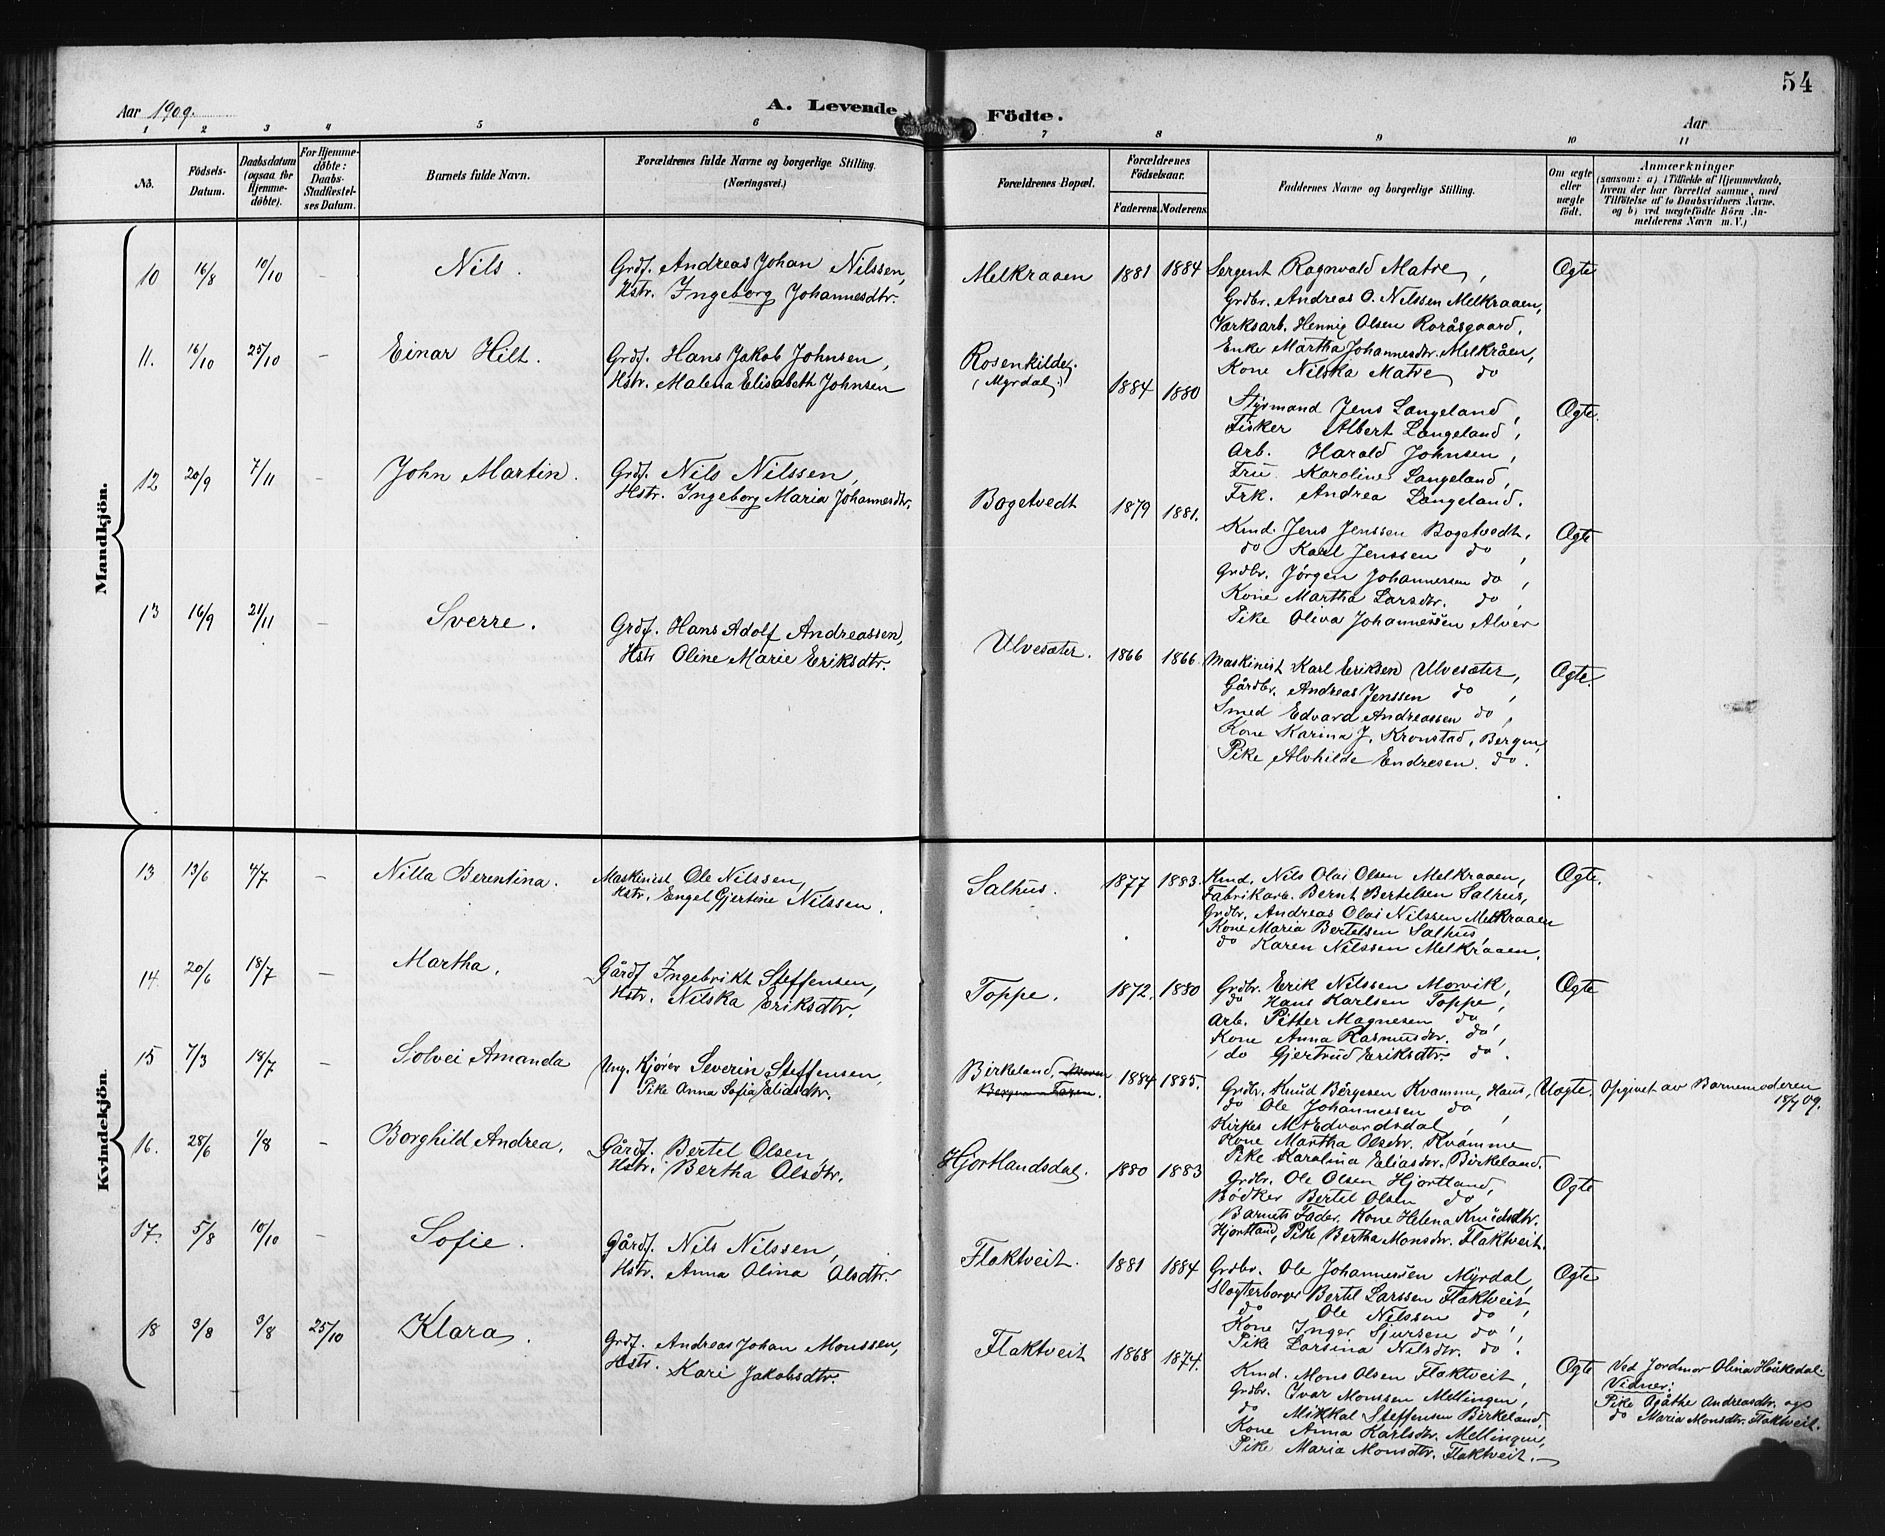 54
Aar 1909.
A. Levende Födte.
Aar
1 2 3 4 5 6 7 8 9 10 11
No.
Födsels-Datum.
Daabsdatum (ogsaa for Hjemme-døbte).
For Hjemme-døbte: Daabs-Stadfæstel-ses Datum.
Barnets fulde Navn.
Forældrenes fulde Navne og borgerlige Stilling. (Næringsvei.)
Forældrenes Bopæl.
Forældrenes Födselsaar.
Faderens. Moderens.
Faddernes Navne og borgerlige Stilling.
Om ægte eller uægte födt.
Anmærkninger
(saasom: a) i Tilfælde af Hjemmedaab,
hvem der har forrettet samme, med
Tilföielse af to Daabsvidners Navne.
og b) ved uægtefödte Börn An-
melderens Navn m. V.)
Mandkjön.
10 16/8 10/10 – Nils.
Grdf. Andreas Johan Nilssen,
Hstr. Ingeborg Johannesdtr.
Melkraaen 1881 1884
Sergent Ragnvald Matre,
Grdbr. Andreas O. Nilssen Melkraaen,
Værksarb. Hennig Olsen Roråsgaard,
Enke Martha Johannesdtr. Melkråen,
Kone Nilska Matre do
Ægte
11. 16/10 25/10 – Einar Hilt.
Grdf. Hans Jakob Johnsen,
Hstr. Malena Elisabeth Johnsen
Rosenkilde
(Myrdal) 1884 1880
Styrmand Jens Langeland,
Fisker Albert Langeland,
Arb. Harald Johnsen,
Fru Karoline Langeland,
Frk. Andrea Langeland.
Ægte.
12 20/9 7/11 – John Martin.
Grdf. Nils Nilssen,
Hstr. Ingeborg Maria Johannesdtr,
Bogetvedt 1879 1881.
Kmd. Jens Jenssen Bogetvedt,
do Karl Jenssen do,
Grdbr. Jørgen Johannessen do,
Kone Martha Larsdtr. do,
Pike Oliva Johannessen Alver
Ægte
13 16/9 21/11 – Sverre.
Grdf. Hans Adolf Andreassen,
Hstr Oline Marie Eriksdtr.
Ulvesæter. 1866 1866
Maskinist Karl Eriksen Ulvesæter,
Gårdbr. Andreas Jenssen do,
Smed Edvard Andreassen do,
Kone Karina J. Kronstad, Bergen,
Pike Alvhilde Endresen. do.
Ægte.
Kvindekjön.
13 13/6 4/7 – Nilla Berentina.
Maskinist Ole Nilssen,
Hstr. Engel Gjertine Nilssen.
Salhus. 1877 1883.
Kmd. Nils Olai Olsen Melkraaen,
Fabrikarb. Bernt Bertelsen Salhus,
Grdbr. Andreas Olai Nilssen Melkraaen
Kone Maria Bertelsen Salhus,
do Karen Nilssen Melkraaen.
Ægte.
14 20/6 18/7 – Martha.
Gårdf. Ingebrikt Steffensen,
Hstr. Nilska Eriksdtr.
Toppe. 1872. 1880
Grdbr. Erik Nilssen Morvik,
do Hans Karlsen Toppe,
Arb. Pitter Magnesen do,
Kone Anna Rasmusdtr. do,
do Gjertrud Eriksdtr. do.
Ægte
15 7/3 18/7 – Solvei Amanda
Ung. Kjører Severin Steffensen,
Pike Anna Sofia Eliasdtr.
Birkeland, 1884 1885.
Grdbr. Knud Børgesen Kvamme, Haus,
do Ole Johannessen do,
Kirkes. M. Edvardsdal,
Kone Martha Olsdtr. Kvamme
Pike Karolina Eliasdtr. Birkeland.
Uægte.
Opgivet av Barnemoderen
18/7 09.
16. 28/6 1/8 – Borghild Andrea.
Gårdf. Bertel Olsen,
Hstr. Bertha Olsdtr.
Hjortlandsdal. 1880 1883
Grdbr. Ole Olsen Hjortland,
Bødker Bertel Olsen do
Barnets Fader. Kone Helena Knudsdtr.
Hjortland, Pike Bertha Monsdtr. Flaktveit.
Ægte
17. 5/8 10/10 – Sofie.
Gårdf. Nils Nilssen,
Hstr. Anna Olina Olsdtr.
Flaktveit. 1881 1884
Grdbr. Ole Johannessen Myrdal,
Slagterborger Bertel Larssen Flaktveit,
do Ole Nilssen do,
Kone Inger Sjursen do,
Pike Larsina Nilsdtr. do.
Ægte
18 3/8 3/8 25/10 Klara
Grdf. Andreas Johan Monssen,
Hstr. Kari Jakobsdtr.
Flaktveit 1868 1874.
Kmd. Mons Olsen Flaktveit,
Grdbr. Ivar Monssen Mellingen,
do Mikkal Steffensen Birkeland,
Kone Anna Karlsdtr. Mellingen,
Pike Maria Monsdtr. Flaktveit.
Ægte
Ved Jordmor Olina Haukedal.
Vidner:
Pike Agåthe Andreasdtr. og
do Maria Monsdtr. Flaktveit.